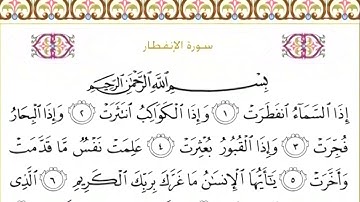 سورة الإنفطار
بِسْمِ اللَّهِ الرَّحْمَٰنِ الرَّحِيمِ
إِذَا السَّمَاءُ انفَطَرَتْ ١ وَإِذَا الْكَوَاكِبُ انتَثَرَتْ ٢ وَإِذَا الْبِحَارُ
فُجِّرَتْ ٣ وَإِذَا الْقُبُورُ بُعْثِرَتْ ٤ عَلِمَتْ نَفْسٌ مَّا قَدَّمَتْ
وَأَخَّرَتْ ٥ يَٰأَيُّهَا الْإِنسَٰنُ مَا غَرَّكَ بِرَبِّكَ الْكَرِيمِ ٦ الَّذِى